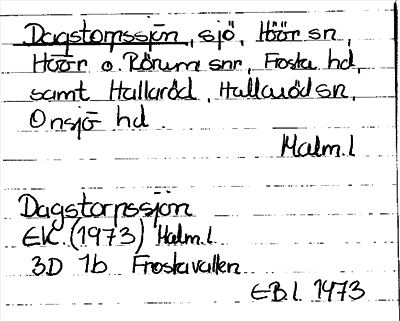 Dagstorpssjön, sjö, Höör sn,
Höör o. Rörum snr, Frosta hd,
samt Hallaröd, Hallaröd sn,
Onsjö hd
Malm.l
Dagstorpssjön
EK. (1973) Malm.l.
3D 1b Frostavallen
EB.l. 1973